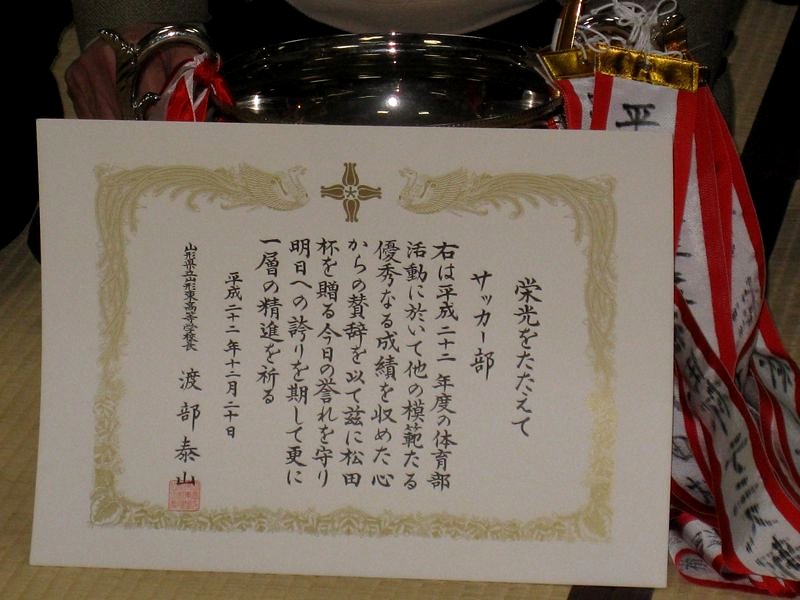 栄光をたたえて
サッカー部
右は平成二十二年度の体育部
活動に於いて他の模範たる
優秀なる成績を収めた心
からの賛辞を以て茲に松田
杯を贈る今日の誉れを守り
明日への誇りを期して更に
一層の精進を祈る
平成二十二年十二月二十日
山形県立山形東高等学校長 渡部泰山
平